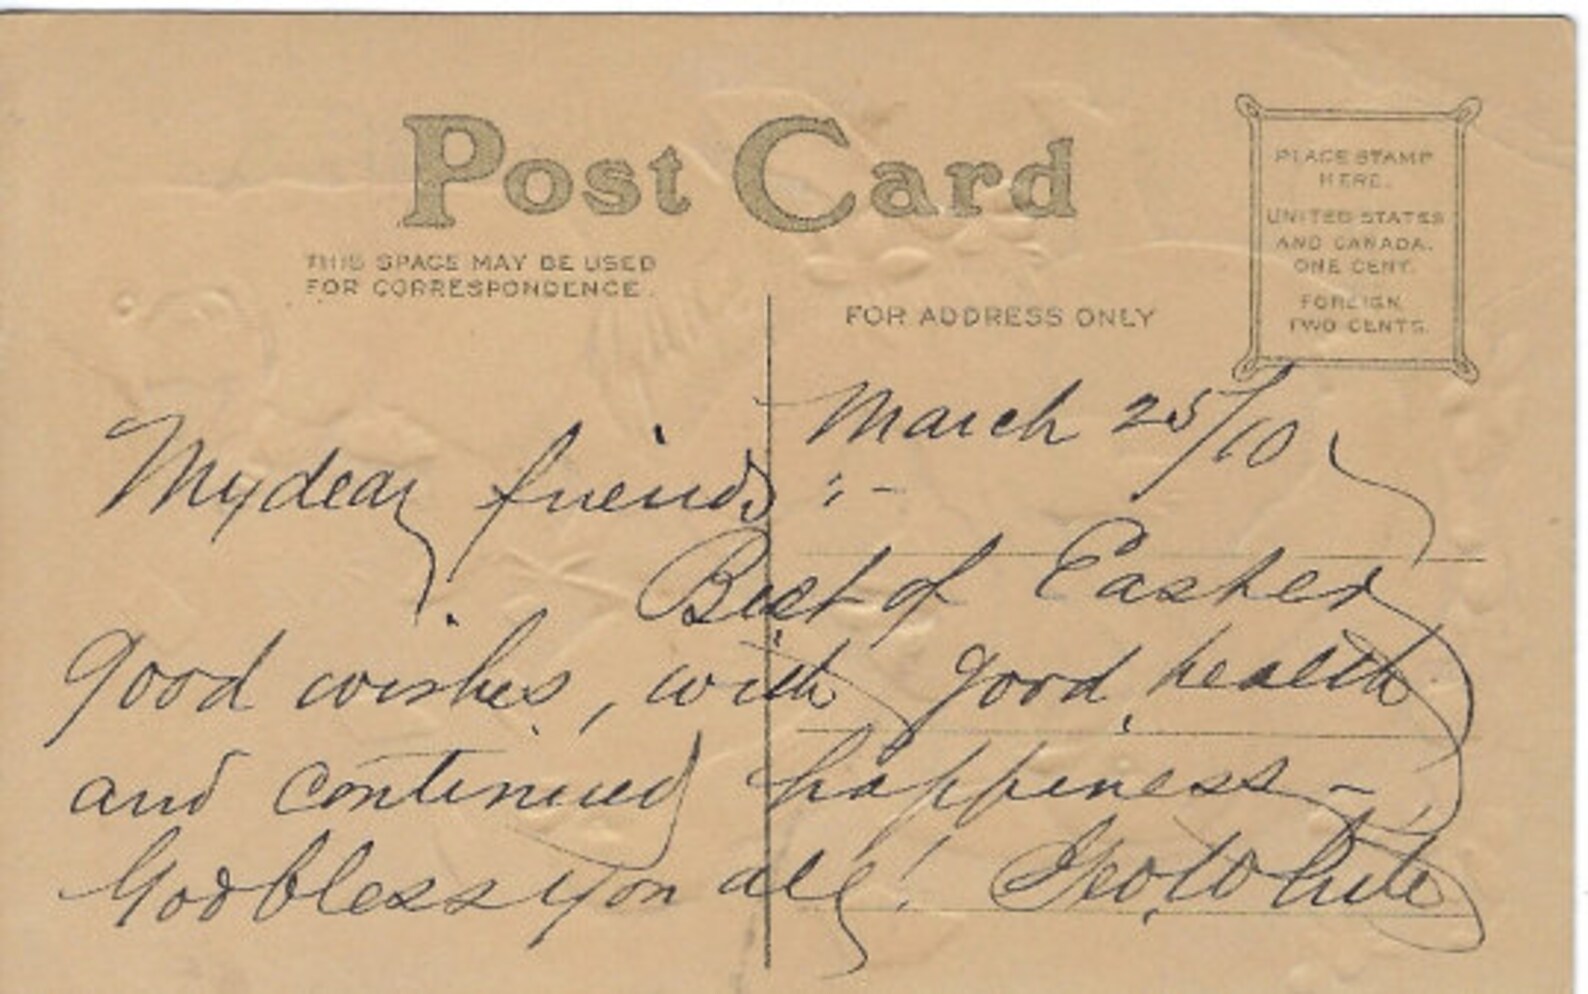 Post Card
THIS SPACE MAY BE USED
FOR CORRESPONDENCE.
FOR ADDRESS ONLY
PLACE STAMP
HERE.
UNITED STATES
AND CANADA.
ONE CENT.
FOREIGN
TWO CENTS.
March 25/10
My dear friends :-
Best of Easter
good wishes, with good health
and continued happiness -
God bless you all! Geo. White